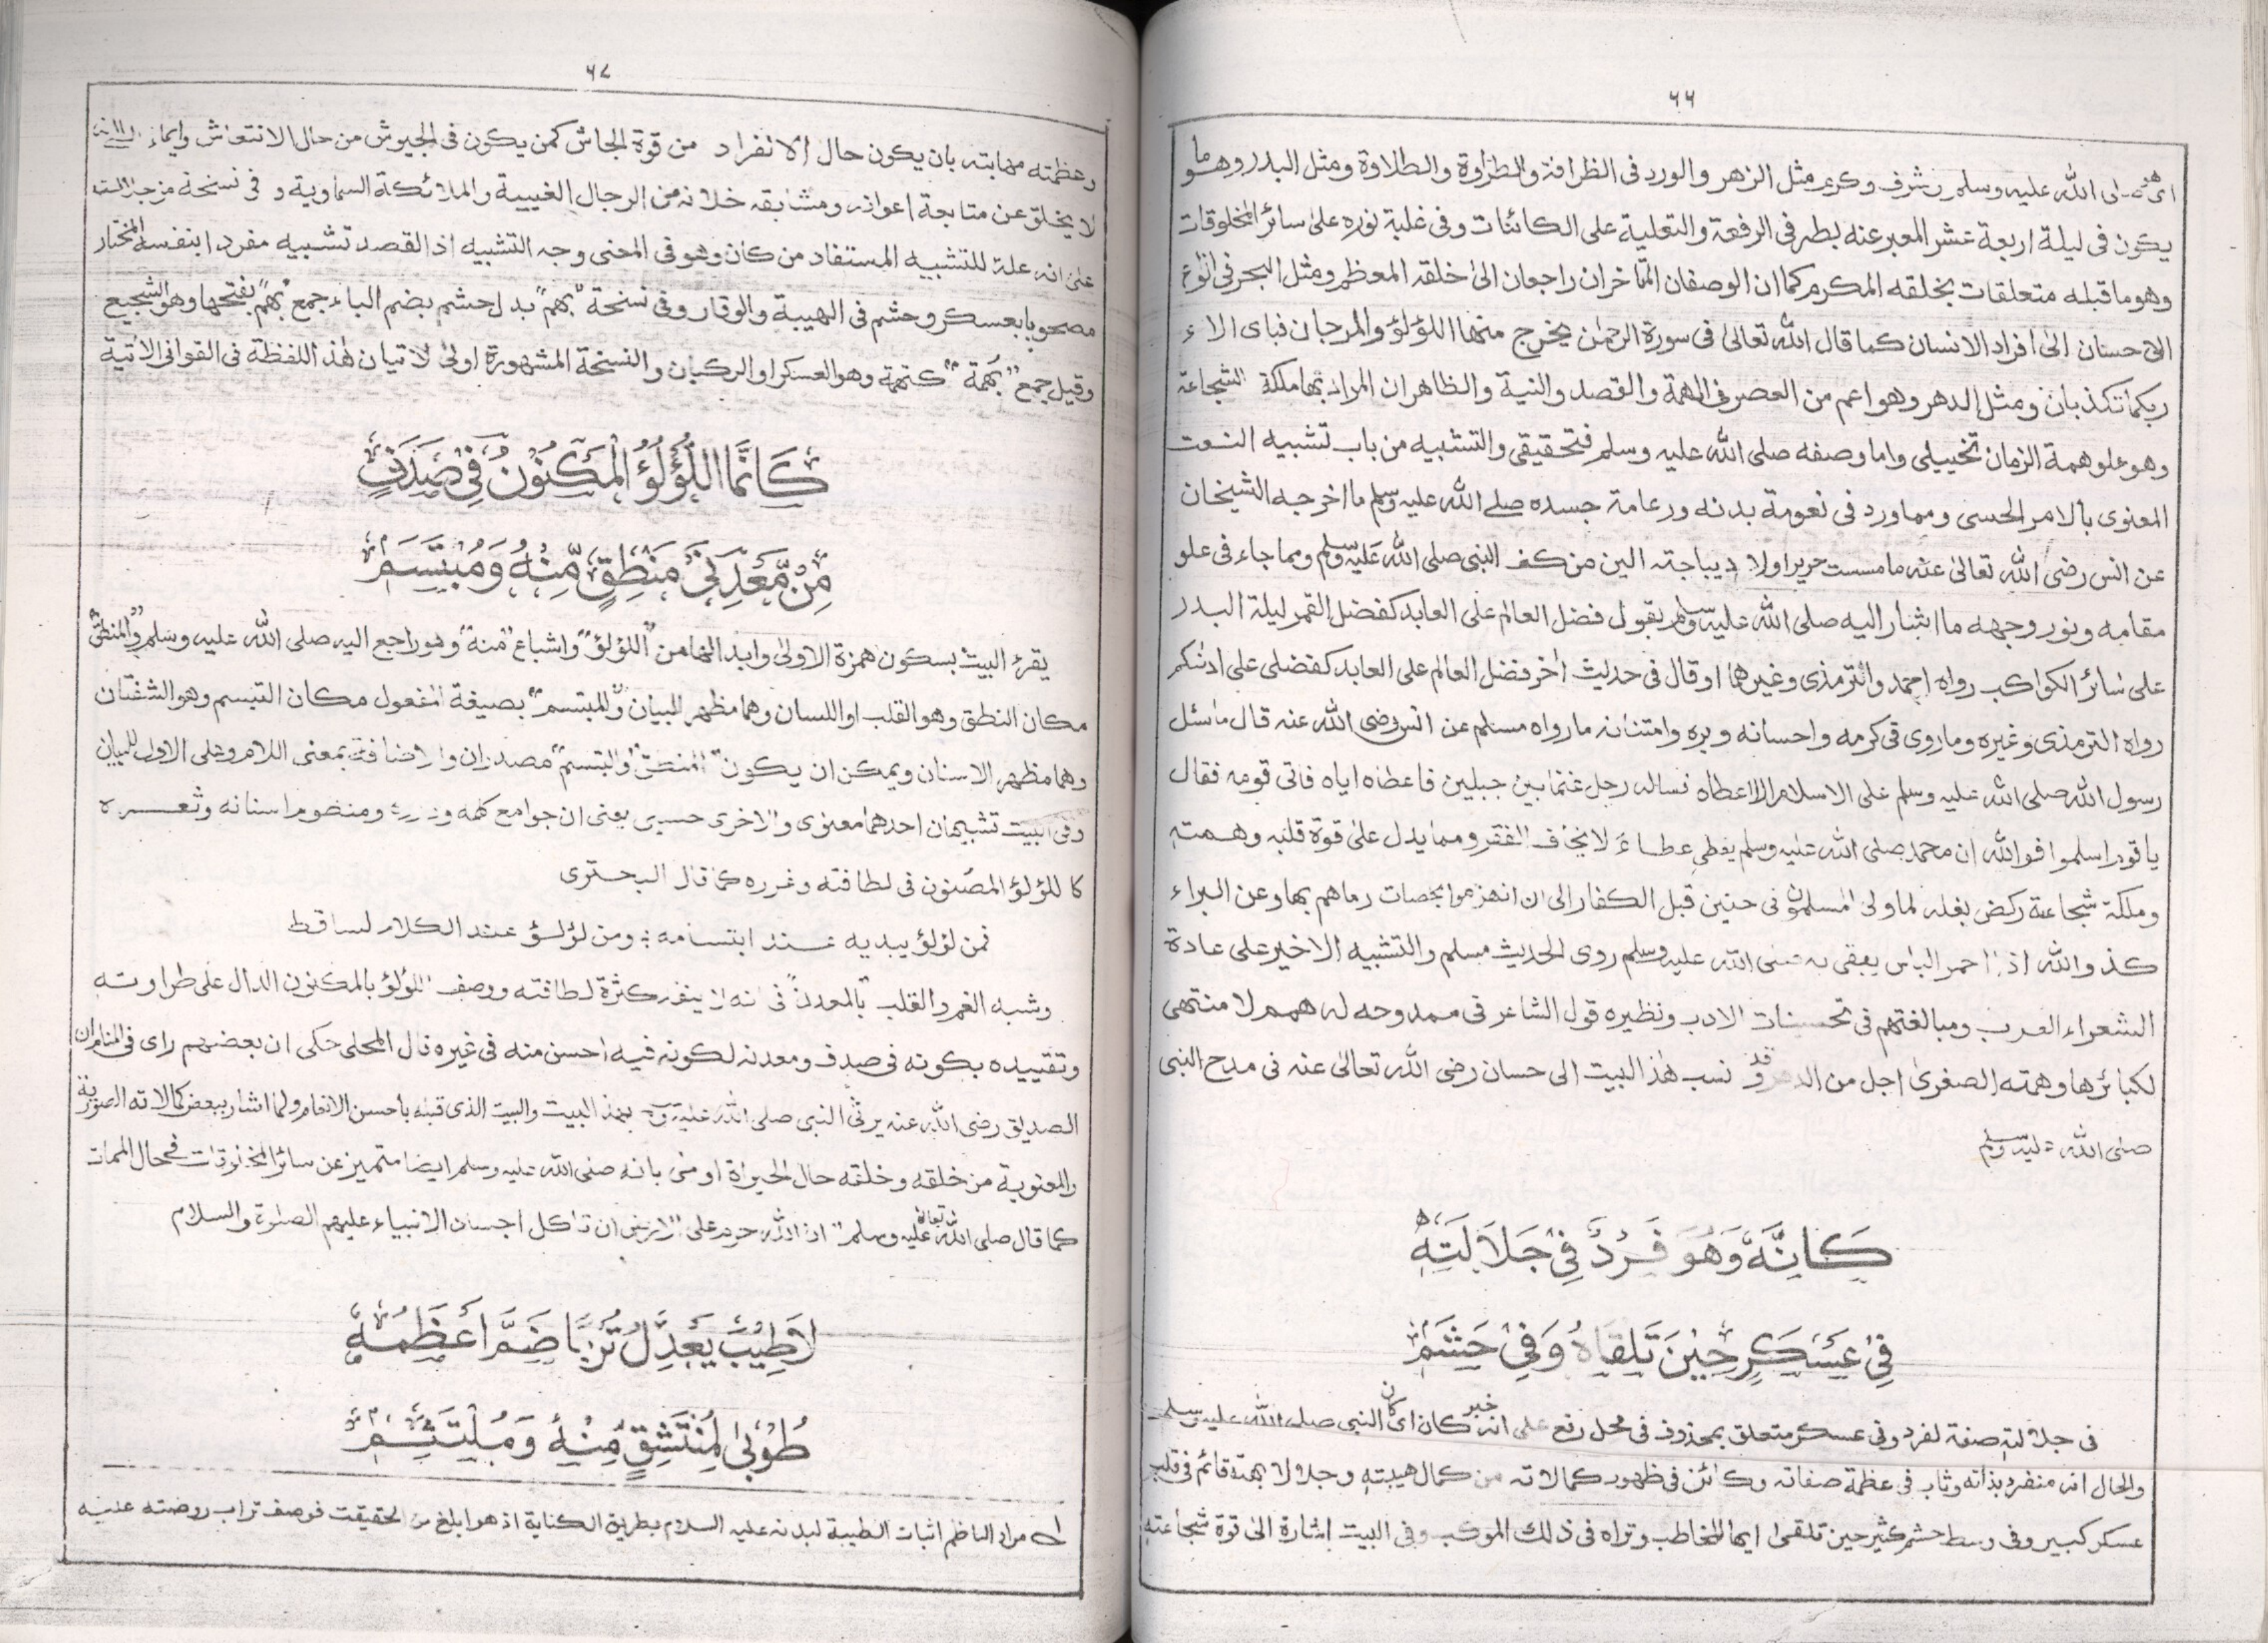 ٦٦
صلى الله عليه وسلم شرف وكرم مثل الزهر والورد فى الظرافة والطراوة والطلاوة ومثل البدر وهو ما
يكون فى ليلة اربعة عشر المعبر عنه بطه فى الرفعة والتعلية على الكائنات وفى غلبة نوره على سائر المخلوقات
وهو ما قبله متعلقات بخلقه المكرم كما ان الوصفان المتأخران راجعان الى خلقه المعظم ومثل البحر فى انواع
الاحسان الى افراد الانسان كما قال الله تعالى فى سورة الرحمن يخرج منهما اللؤلؤ والمرجان فباى الاء
ربكما تكذبان ومثل الدهر وهو اعم من العصر فى الهمة والقصد والنية والظاهر ان المراد بها ملكة الشجاعة
وهو علو همة الزمان تخييلى واما وصفه صلى الله عليه وسلم فتحقيقى والتشبيه من باب تشبيه النعت
المعنوى بالامر الحسى ومما ورد فى نعومة بدنه ورعامة جسده صلى الله عليه وسلم ما اخرجه الشيخان
عن انس رضى الله تعالى عنه ما مسست حريرا ولا ديباجة الين من كف النبى صلى الله عليه وسلم ومما جاء فى علو
مقامه ونور وجهه ما اشار اليه صلى الله عليه وسلم بقوله فضل العالم على العابد كفضل القمر ليلة البدر
على سائر الكواكب رواه احمد والترمذى وغيرهما او قال فى حديث اخر فضل العالم على العابد كفضلى على ادنكم
رواه الترمذى وغيره وما روى فى كرمه واحسانه وبره وامتنانه ما رواه مسلم عن انس رضى الله عنه قال ما سئل
رسول الله صلى الله عليه وسلم على الاسلام الا اعطاه فساله رجل غنما بين جبلين فاعطاه اياه فاتى قومه فقال
يا قوم اسلموا فوالله ان محمد صلى الله عليه وسلم يعطى عطاء لا يخاف الفقر ومما يدل على قوة قلبه وهمته
وملكة شجاعة ركض بغله لما ولى المسلمون فى حنين قبل الكفار الى ان انهزموا بحصات رماهم بها وعن البراء
كذ والله اذا احمر الباس يعقى به صلى الله عليه وسلم روى الحديث مسلم والتشبيه الاخير على عادة
الشعراء العرب ومبالغتهم فى تحسينات الادب ونظيره قول الشاعر فى ممدوحه له همم لا منتهى
لكبائرها وهمته الصغرى اجل من الدهر وقد نسب هذا البيت الى حسان رضى الله تعالى عنه فى مدح النبى
صلى الله عليه وسلم
كَاَنَّهٗ وَهُوَ فَرْدٌ فِىْ جَلَالَتِهٖ
فِىْ عَسْكَرٍ حِيْنَ تَلْقَاهُ وَفِىْ حَشَمٖ
فى جلالته صفة لفرد وفى عسكر متعلق بمحذوف فى محل رفع على انه خبر كان اى كان النبى صلى الله عليه وسلم
والحال انه منفرد بذاته وثاب فى عظمة صفاته وكائن فى ظهور كمالاته من كمال هيبته وجلالا بهته قائم فى قلب
عسكر كبير وفى وسط حشم كثير حين تلقى ايها المخاطب وتراه فى ذلك الموكب وفى البيت اشارة الى قوة شجاعته
٦٧
وعظمته مهابته بان يكون حال الانفراد من قوة الجاش كمن يكون فى الجيوش من حال الانتعاش وايماء الى انه
لا يخلق عن متابعة اعوانه ومشابقه خلانه من الرجال الغيبية والملائكة السماوية و فى نسخة من جلالته
على انه علة للتشبيه المستفاد من كان وهو فى المعنى وجه التشبيه اذ القصد تشبيه مفردا بنفسه المختار
مصحوبا بعسكر وحشم فى الهيبة والوقار وفى نسخة "بهم" بدل حشم بضم الباء جمع "بهم" بفتحها وهو الشجيع
وقيل جمع "بُهمة" كتهمة وهو العسكر او الركبان والنسخة المشهورة اولى لاتيان هذا اللفظة فى القوافى الاتية
كَاَنَّمَا اللُّؤْلُؤُ الْمَكْنُوْنُ فِىْ صَدَفٍ
مِنْ مَّعْدِنَىْ مَنْطِقٍ مِّنْهُ وَمُبْتَسَمٖ
يقرء البيت بسكون همزة الاولى وابدالها من "اللؤلؤ" واشباع "منه" وهو راجع اليه صلى الله عليه وسلم "والمنطق"
مكان النطق وهو القلب او اللسان وهما مظهر البيان "والمبتسم" بصيغة المفعول مكان التبسم وهو الشفتان
وهما مظهر الاسنان ويمكن ان يكون "المنطق" والمبتسم" مصدران والاضافة بمعنى اللام وعلى الاول للبيان
وفى البيت تشبيهان احدهما معنوى والاخرى حسى يعنى ان جوامع كلمه ودرره ومنضوم اسنانه وثغره
كاللؤلؤ المصنون فى لطافته وغرره كما قال البحترى
فمن لؤلؤ يبديه عند ابتسامه ؛ ومن لؤلؤ عند الكلام لساقط
وشبه الغم والقلب "بالمعدن" فى انه لا ينفد كثرة لطافته ووصف اللؤلؤ بالمكنون الدال على طراوته
وتقييده بكونه فى صدف ومعدنه لكونه فيه احسن منه فى غيره قال المحلى حكى ان بعضهم راى فى المنام ان
الصديق رضى الله عنه يرثى النبى صلى الله عليه وسلم بهذ البيت والبيت الذى قبله باحسن الانغام ولما اشار ببعض كمالاته الصورية
والمعنوية من خلقه وخلقه حال الحيواة اومى بانه صلى الله عليه وسلم ايضا متميز عن سائر المخلوقات فى حال الممات
كما قال صلى الله تعالى عليه وسلم "ان الله حرم على الارض ان تاكل اجساد الانبياء عليهم الصلوة والسلام
لَاطِيْبَ يَعْدِلُ تُرْبًا ضَمَّ اَعْظُمَهٗ
طُوْبٰى لِمُنْتَشِقٍ مِّنْهُ وَمُلْتَثِمٖ
لے مراد الناظم اثبات الطيبة لبدنه عليه السلام بطريق الكناية اذ هو ابلغ من الحقيقت فوصف تراب روضته عليه